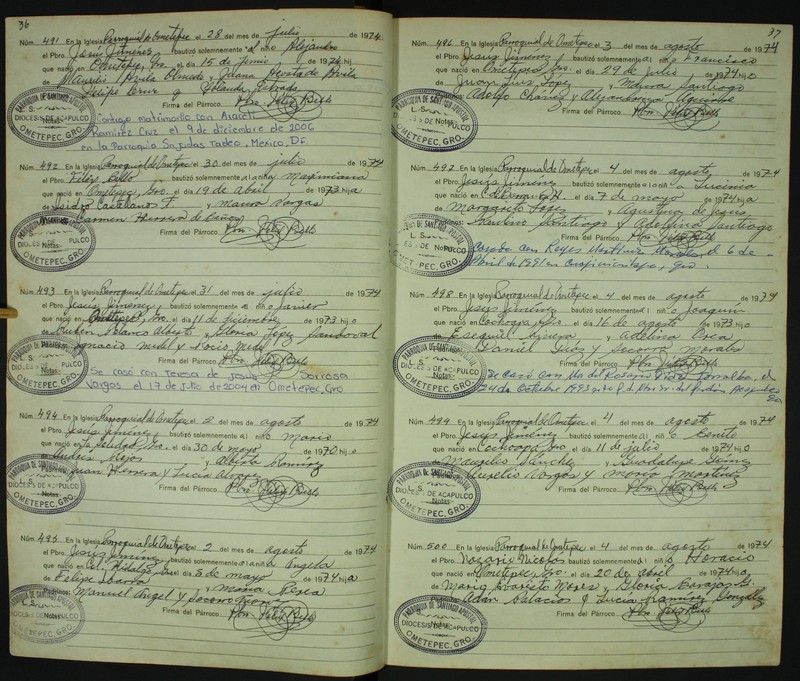 36
Núm. 491 En la Iglesia Parroquial de Ometepec el 28 del mes de julio de 1974
el Pbro. Jesús Jiménez bautizó solemnemente al niño Alejandro
que nació en Ometepec, Gro. el día 15 de junio de 1974 hijo
de y
Padrinos: Felipe Cruz y Yolanda Estrada
Firma del Párroco Pbro. Félix Bello
PARROQUIA DE SANTIAGO APOSTOL
DIOCESIS DE ACAPULCO
OMETEPEC, GRO.
Notas:
Contrajo matrimonio con Araceli
Ramírez Cruz el 9 de diciembre de 2006
en la Parroquia Sn Judas Tadeo, Mexico, DF.
Núm. 492 En la Iglesia Parroquial de Ometepec el 30 del mes de julio de 1974
el Pbro. Félix Bello bautizó solemnemente a la niña Maximiana
que nació en Ometepec, Gro. el día 19 de abril de 1973 hija
de Isidro Castellano y Maura Vargas
Carmen Herrera de
Firma del Párroco Pbro. Félix Bello
PARROQUIA DE SANTIAGO APOSTOL
Notas:
OMETEPEC, GRO.
Núm. 493 En la Iglesia Parroquial de Ometepec el 31 del mes de julio de 1974
el Pbro. Jesús Jiménez bautizó solemnemente al niño Javier
que nació en Ometepec, Gro. el día 11 de diciembre de 1973 hijo
de Rubén y Gloria López Sandoval
Ignacio y Rocío
Firma del Párroco Pbro. Félix Bello
PARROQUIA DE SANTIAGO APOSTOL
Notas:
OMETEPEC, GRO.
Se casó con Teresa de Jesus
Vargas el 17 de Julio de 2004 en Ometepec, Gro
Núm. 494 En la Iglesia Parroquial de Ometepec el 2 del mes de agosto de 1974
el Pbro. Jesús Jiménez bautizó solemnemente al niño Mario
que nació en la Soledad, Gro. el día 30 de mayo de 1970 hijo
de Andrés y Alberta Ramírez
Padrinos: Juan Herrera y Lucía
Firma del Párroco Pbro. Félix Bello
PARROQUIA DE SANTIAGO APOSTOL
Notas:
DIOCESIS DE ACAPULCO
OMETEPEC, GRO.
Núm. 495 En la Iglesia Parroquial de Ometepec el 2 del mes de agosto de 1974
el Pbro. Jesús Jiménez bautizó solemnemente a la niña Angela
que nació en Col. Hidalgo, Gro. el día 3 de mayo de 1974 hija
de Felipe Ibarra y María Perea
Padrinos: Manuel Angel y Socorro
Firma del Párroco Pbro. Félix Bello
PARROQUIA DE SANTIAGO APOSTOL
Notas:
DIOCESIS DE ACAPULCO
OMETEPEC, GRO.
37
Núm. 496 En la Iglesia Parroquial de Ometepec el 3 del mes de agosto de 1974
el Pbro. Jesús Jiménez bautizó solemnemente al niño Francisco
que nació en Ometepec, Gro. el día 29 de julio de 1974 hijo
de Juan Luis López y Maura Santiago
Adolfo Chávez y
Firma del Párroco Pbro. Félix Bello
PARROQUIA DE SANTIAGO APOSTOL
Notas:
OMETEPEC, GRO.
Núm. 497 En la Iglesia Parroquial de Ometepec el 4 del mes de agosto de 1974
el Pbro. Jesús Jiménez bautizó solemnemente a la niña Lucinia
que nació en el día 7 de mayo de 1974 hija
de Margarito López y Agustina de Jesús
Padrinos: Paulino Santiago y Adelina Santiago
Firma del Párroco Pbro. Félix Bello
Notas:
Casada con Reyes Martínez el 6 de
Abril de 1991 en Cuajinicuilapa, Gro.
Núm. 498 En la Iglesia Parroquial de Ometepec el 4 del mes de agosto de 1974
el Pbro. Jesús Jiménez bautizó solemnemente al niño Joaquín
que nació en Cochoapa, Gro. el día 16 de agosto de 1973 hijo
de Esequiel y Adelina
Daniel y Socorro Morales
Firma del Párroco Pbro. Félix Bello
PARROQUIA DE SANTIAGO APOSTOL
Notas:
OMETEPEC, GRO.
Se casó con Ma. del Rosario el
de Octubre 1993
Núm. 499 En la Iglesia Parroquial de Ometepec el 4 del mes de agosto de 1974
el Pbro. Jesús Jiménez bautizó solemnemente al niño Benito
que nació en Cochoapa, Gro. el día 11 de julio de 1974 hijo
de Maurilio Sánchez y Guadalupe
Aurelio Vargas y María Martínez
Firma del Párroco Pbro. Félix Bello
PARROQUIA DE SANTIAGO APOSTOL
Notas:
DIOCESIS DE ACAPULCO
OMETEPEC, GRO.
Núm. 500 En la Iglesia Parroquial de Ometepec el 4 del mes de agosto de 1974
el Pbro. Nazario Nicolás bautizó solemnemente al niño Horacio
que nació en Ometepec, Gro. el día 20 de abril de 1974 hijo
de y Gloria Barajas G.
Adán Palacios y Lucía Ramírez González
Firma del Párroco Pbro. Félix Bello
PARROQUIA DE SANTIAGO APOSTOL
Notas:
DIOCESIS DE ACAPULCO
OMETEPEC, GRO.